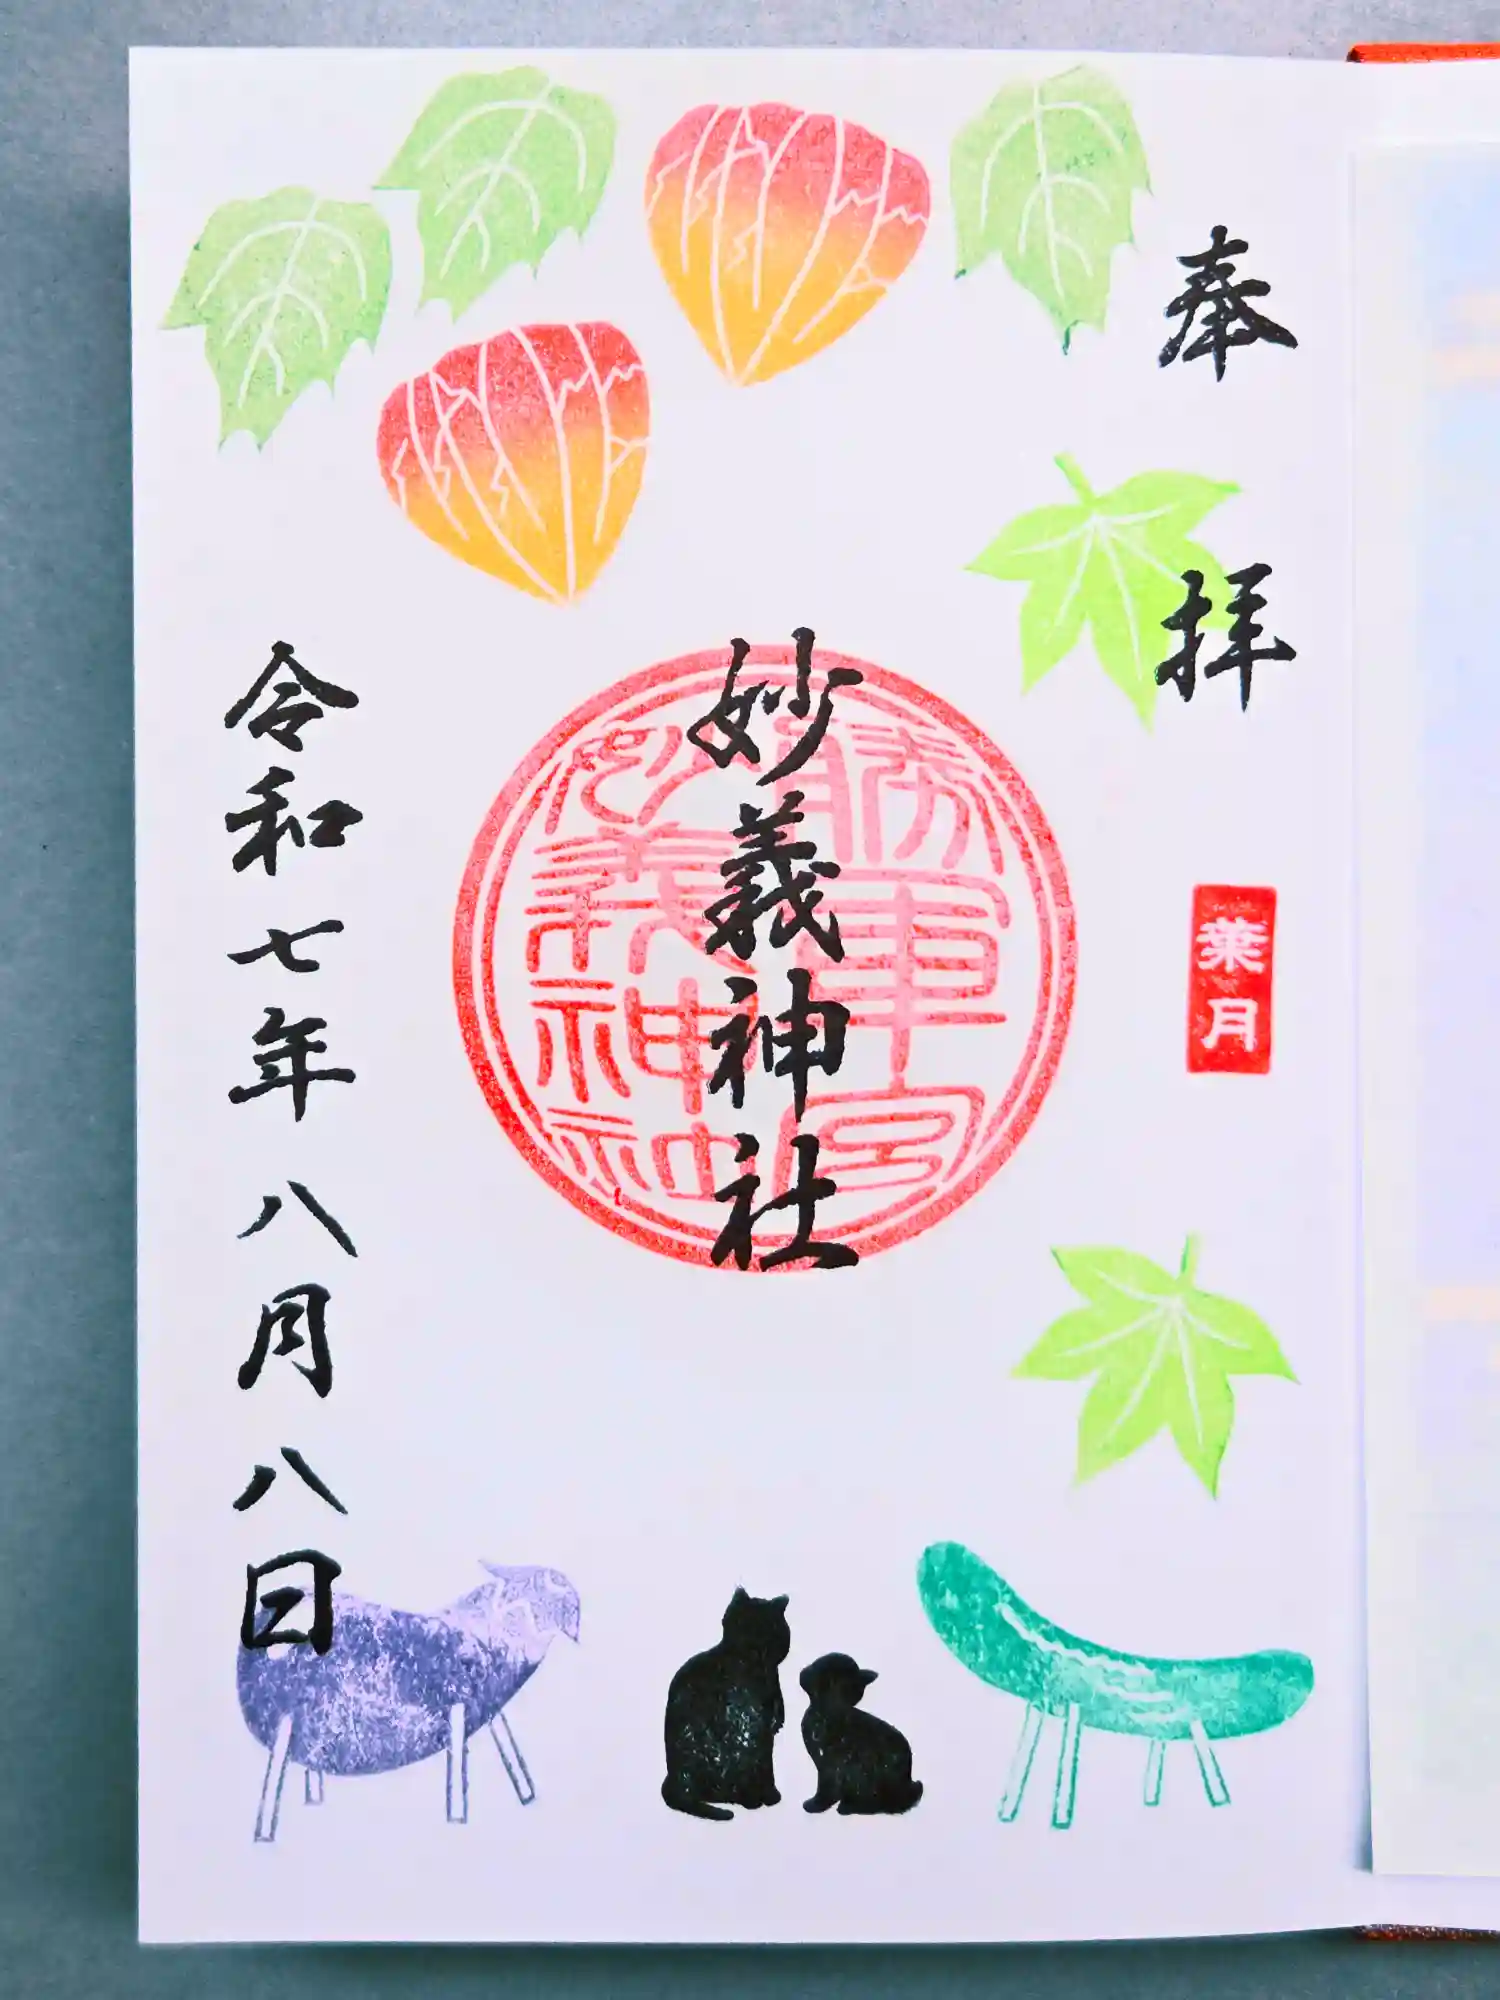 奉拝
葉月
妙義神社
勝軍宮
妙義神社
令和七年八月八日